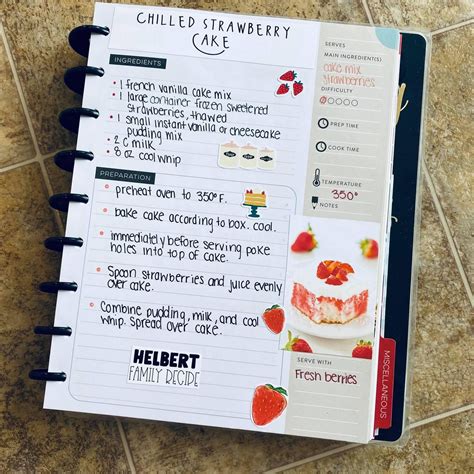 CHILLED STRAWBERRY
CAKE
INGREDIENTS
• 1 french vanilla cake mix
• 1 large container frozen sweetened
strawberries, thawed
• 1 small instant vanilla or cheesecake
pudding mix
• 2 C milk
• 8 oz cool whip
PREPARATION
• preheat oven to 350°F.
• bake cake according to box. cool.
• immediately before serving poke
holes into top of cake.
• Spoon strawberries and juice evenly
over cake.
• Combine pudding, milk, and cool
whip. Spread over cake.
HELBERT
FAMILY RECIPE
SERVES
MAIN INGREDIENT(S)
cake mix
strawberries
DIFFICULTY
PREP TIME
COOK TIME
TEMPERATURE
350°
NOTES
SERVE WITH
Fresh berries
MISCELLANEOUS